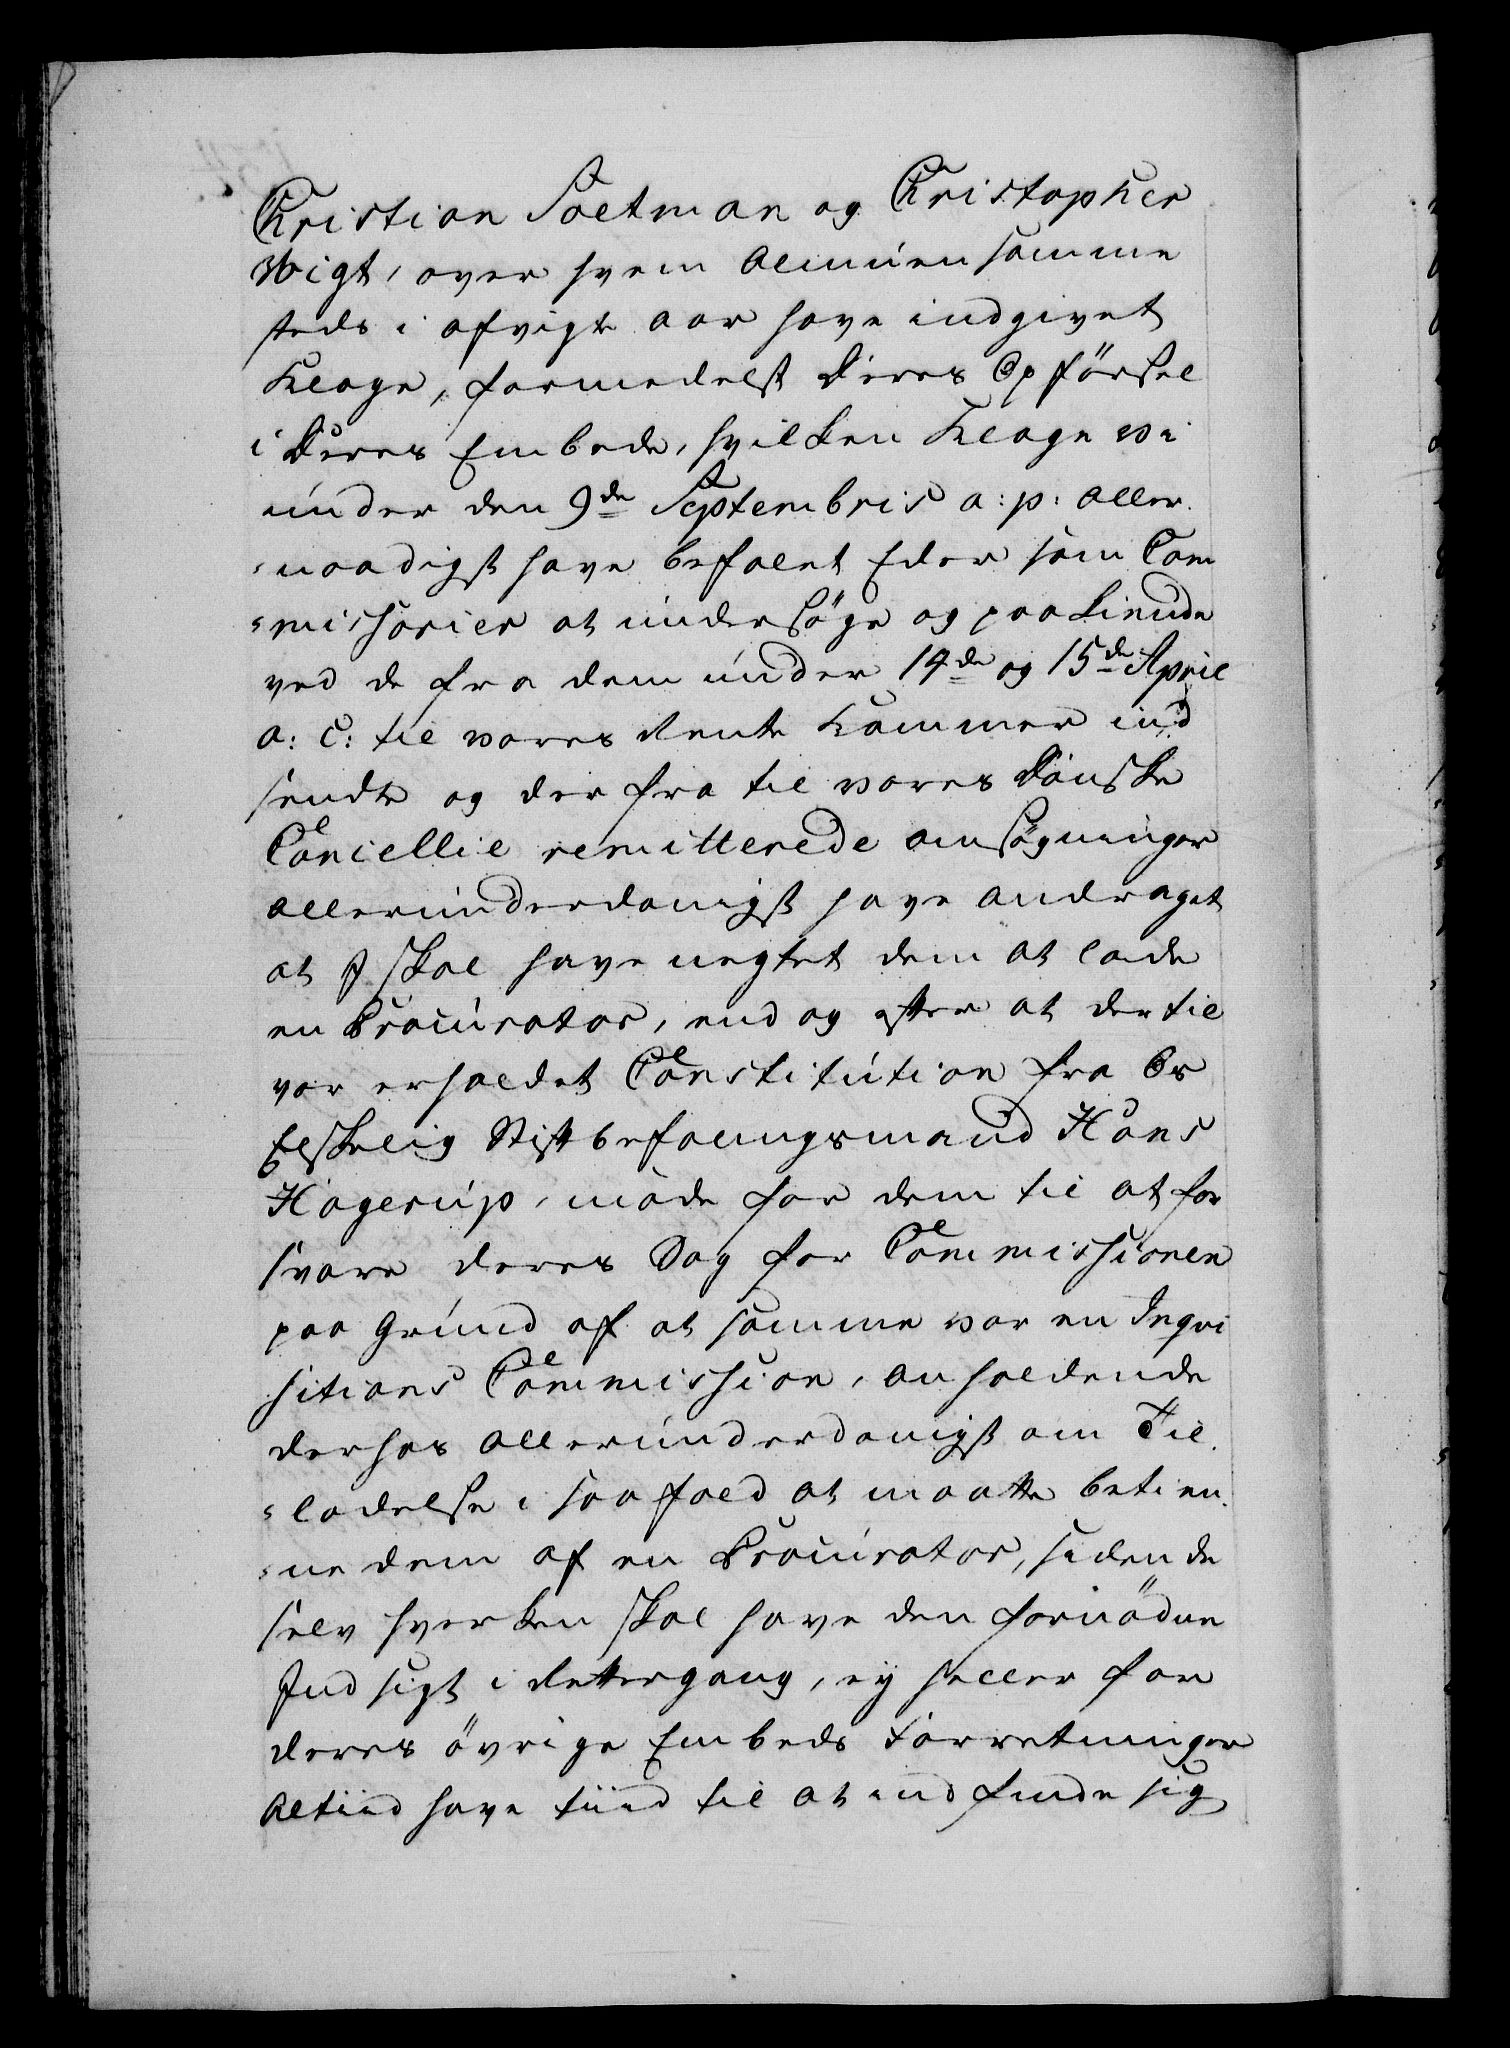 Christian Soelman og Christopher
Woigt, over hvem Almuen samme
steds i afvigte Aar have indgivet
Klage, formedelst Deres Opførsel
i Deres Embede, hvilken Klage vi
under den 9de Septembris a: p: aller-
naadigst have befalet Eder som Com
missarier at undersøge og paakiende
ved de fra dem under 14de og 15de April
a: c: til vores Rente Kammer ind
sendte og der fra til vores Danske
Cancellie remitterede ansøgninger
allerunderdanigst have andraget
at I skal have negtet dem at lade
en Procurator, end og efter at der til
var erholdet Constitution fra Os
Elskelig Stiftbefalingsmand Hans
Hagerup, møde for dem til at for
svare deres Sag for Commissionen
paa Grund af at samme var en Inqvi
sitions Commission, anholdende
derhos allerunderdanigst om Til-
ladelse i saa fald at maatte betien-
ne dem af en Procurator, siden de
selv hverken skal have den fornødne
Indsigt i Rettergang, ey heller for
deres øvrige Embeds Forretninger
Altiid have tiid til at indfinde sig